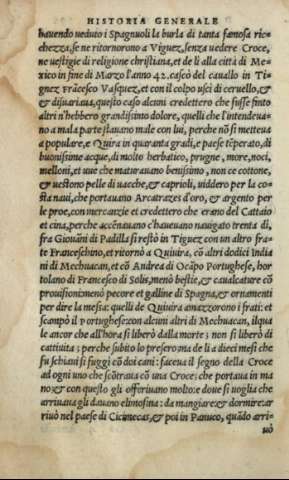 HISTORIA GENERALE
hauendo ueduto i Spagnuoli la burla di tanta famosa ric-
chezza, se ne ritornorono a Viguez, senza uedere Croce,
ne uestigie di religione christiana, et de li alla città di Me-
xico in fine di Marzo l'anno 42. cascò del cauallo in Ti-
gnez Frãcesco Vasquez, et con il colpo uscì di ceruello, &
& disuariaua, questo caso alcuni credettero che fusse finto
altri n'hebbero grandissimo dolore, quelli che l'intendeua-
no a mala parte stauano male con lui, perche nõ si metteua
a populare, e Quira in quaranta gradi, e paese tẽperato, di
buonissime acque, di molto herbatico, prugne, more, noci,
melloni, et uue che maturauano benissimo, non ce cottone,
& uestono pelle di uacche, & caprioli, uiddero per la co-
sta naui, che portauano Arcatrazes d'oro, & argento per
le proe, con mercanzie et credettero che erano del Cattaio
et cina, perche accẽnauano c'haueuano nauigato trenta dì,
fra Giouãni di Padilla si restò in Tiguez con un altro fra-
te Franceschino, et ritornò a Quiuira, cõ altri dodici India
ni di Mechuacan, et cõ Andrea di Ocãpo Portughese, hor
tolano di Francesco di Solis, menò bestie, & caualcature cõ
prouisioni menò pecore et galline di Spagna, & ornamenti
per dire la messa: quelli de Quiuira amazzorono i frati: et
scampò il Portughese con alcuni altri di Mechuacan, ilqua
le ancor che all'hora si liberò dalla morte; non si liberò di
cattiuita; perche subito lo presero ma de li a dieci mesi che
fu schiauo si fuggì cõ doi cani: faceua il segno della Croce
ad ogni uno che scõtraua cõ una Croce che portaua in ma
no: & con questo gli offeriuano molto: e doue si uoglia che
arriuaua gli dauano elimosina: da mangiare: & dormire: ar
riuò nel paese di Cicimecas, & poi in Panuco, quãdo arri-
uò